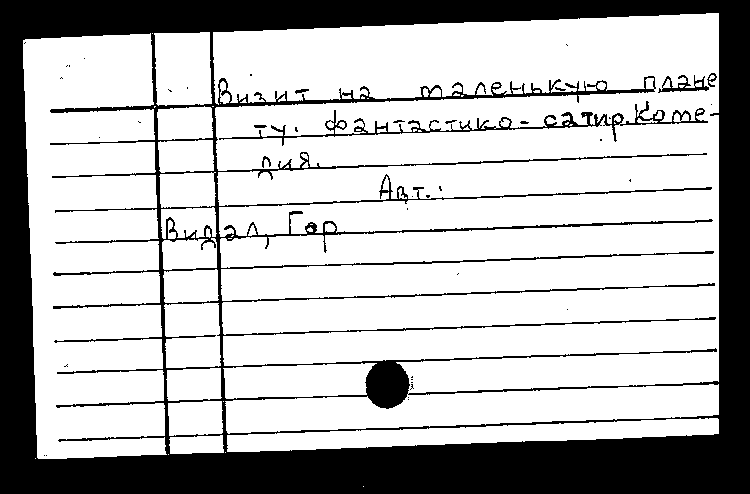 Визит на маленькую плане
ту. Фантастико-сатир. Коме-
дия.
Авт.:
Видал, Гор